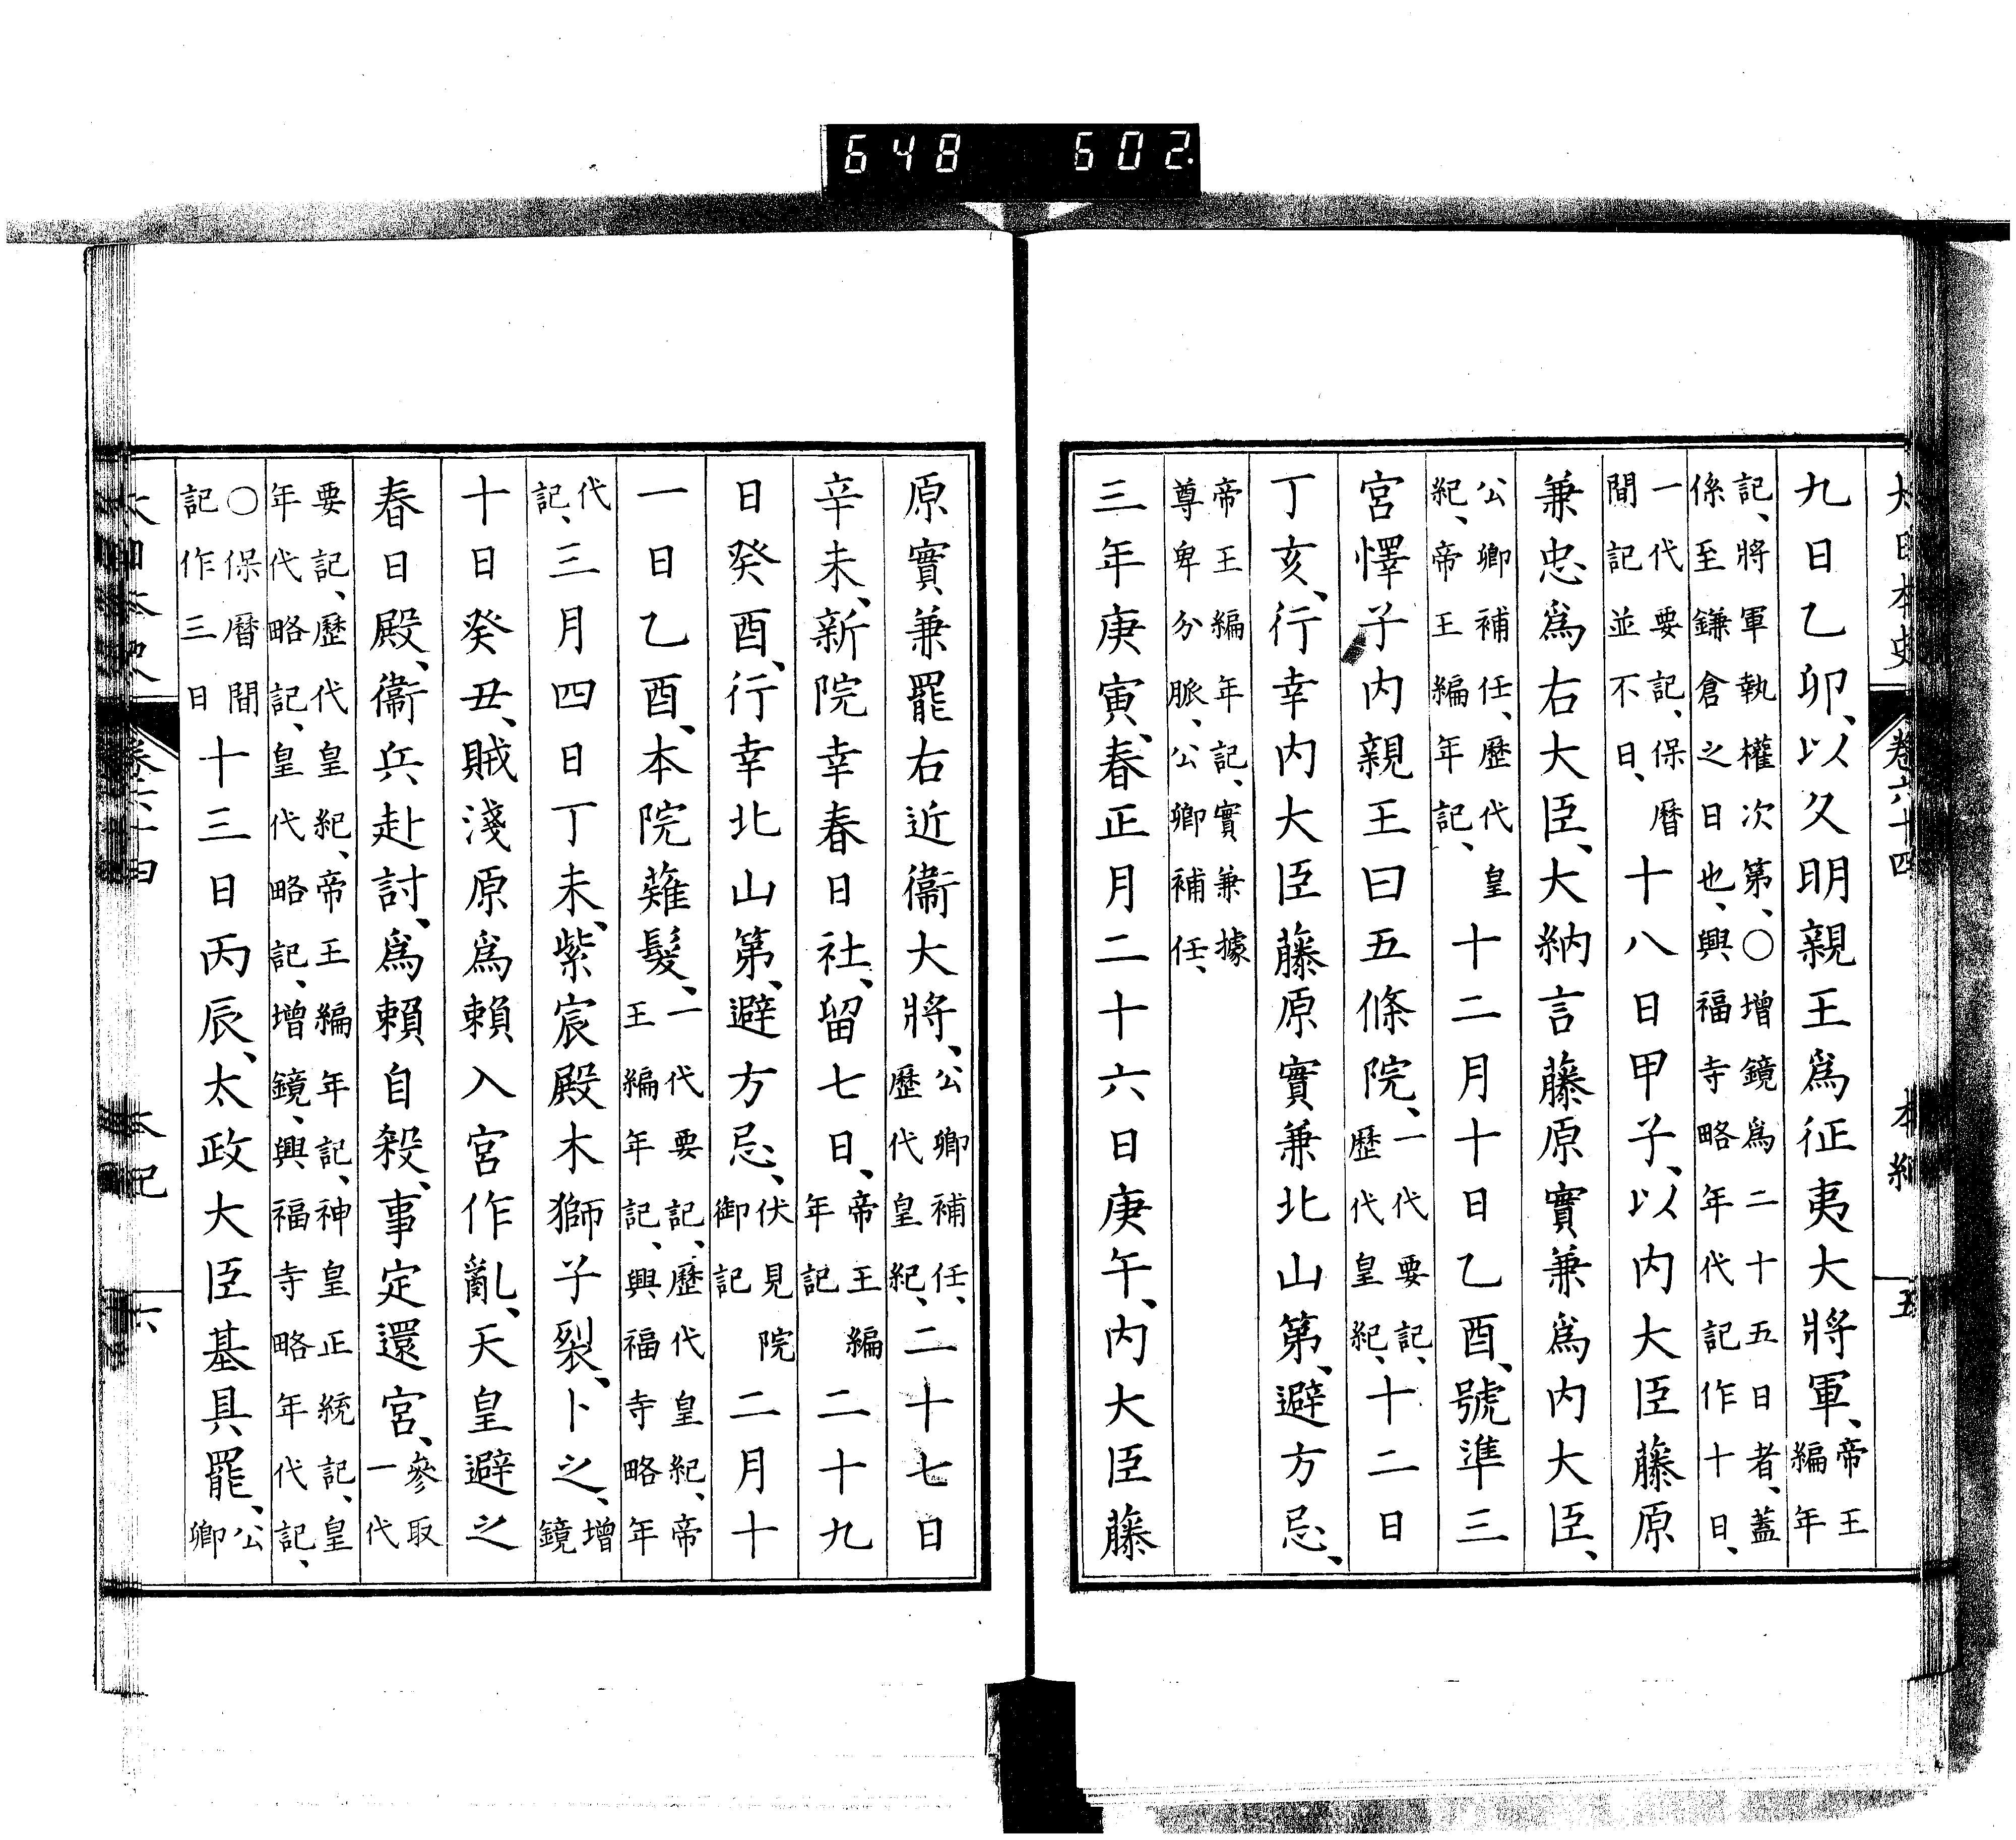 648 602.
大日本史 卷六十四 本紀 五
九日乙卯、以久明親王爲征夷大將軍、帝王編年
記、將軍執權次第、〇增鏡爲二十五日者、蓋係至鎌倉之日也、興福寺略年代記作十日、
一代要記、保曆間記並不日、十八日甲子、以內大臣藤原
兼忠爲右大臣、大納言藤原實兼爲內大臣、
公卿補任、歷代皇紀、帝王編年記、十二月十日乙酉、號準三
宮懌子內親王曰五條院、一代要記、歷代皇紀、十二日
丁亥、行幸內大臣藤原實兼北山第、避方忌、
帝王編年記、實兼據尊卑分脈、公卿補任、
三年庚寅、春正月二十六日庚午、內大臣藤
原實兼罷右近衞大將、公卿補任、歷代皇紀、二十七日
辛未、新院幸春日社、留七日、帝王編年記二十九
日癸酉、行幸北山第、避方忌、伏見院御記二月十
一日乙酉、本院薙髮、一代要記、歷代皇紀、帝王編年記、興福寺略年
代記、三月四日丁未、紫宸殿木獅子裂、卜之、增鏡
十日癸丑、賊淺原爲賴入宮作亂、天皇避之
春日殿、衞兵赴討、爲賴自殺、事定還宮、參取一代
要記、歷代皇紀、帝王編年記、神皇正統記、皇年代略記、皇代略記、增鏡、興福寺略年代記、
〇保曆間記作三日十三日丙辰、太政大臣基具罷、公卿
大日本史 卷六十四 本紀 六